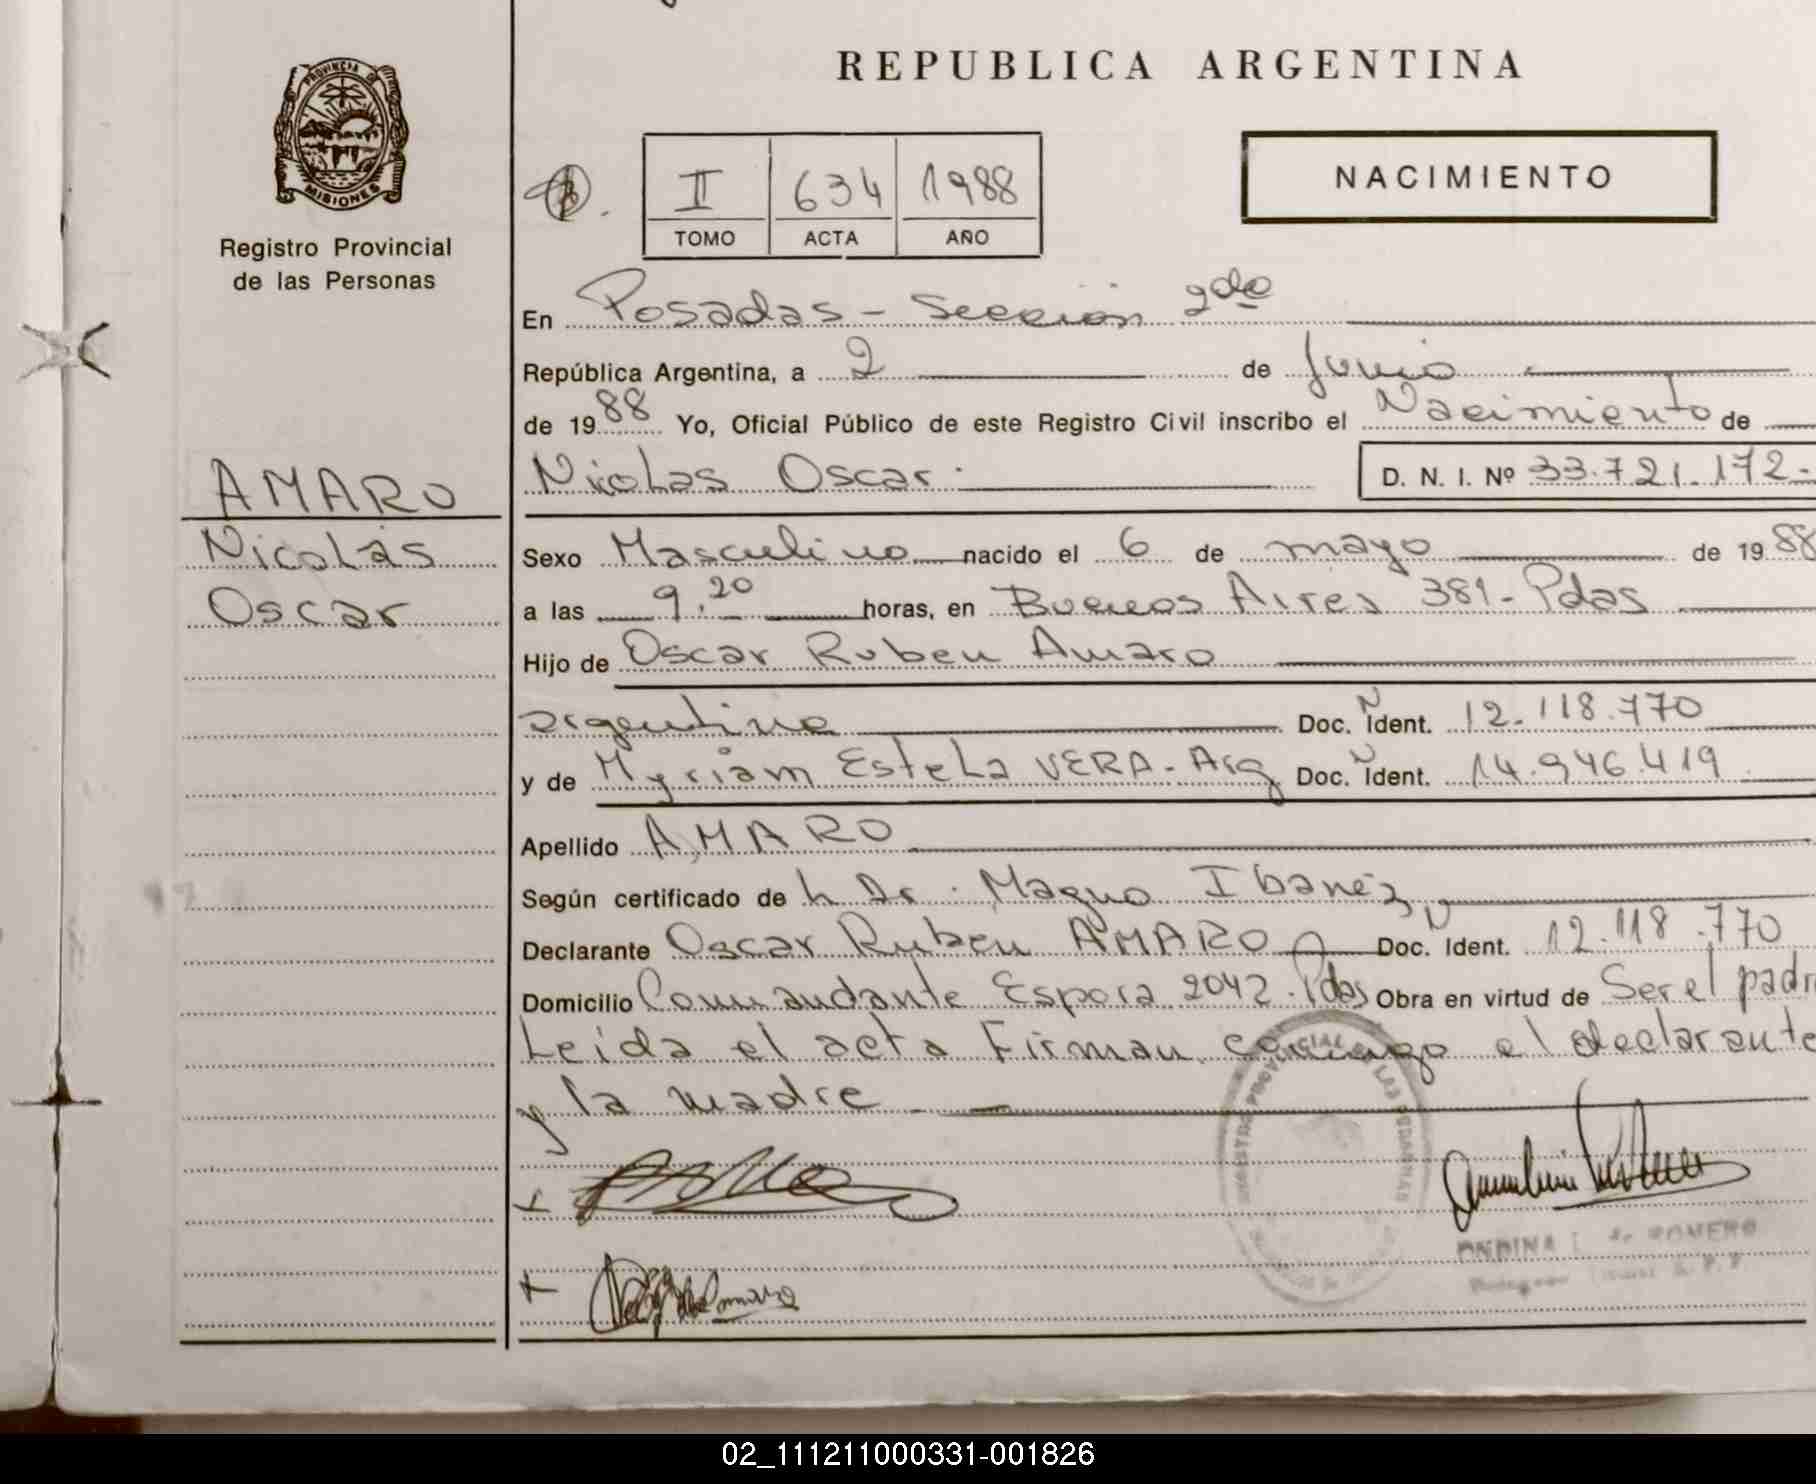 PROVINCIA DE
MISIONES
Registro Provincial
de las Personas
REPUBLICA ARGENTINA
II 634 1988
TOMO ACTA AÑO
NACIMIENTO
En Posadas - Sección 2da
República Argentina, a 2 de Junio
de 1988 Yo, Oficial Público de este Registro Civil inscribo el Nacimiento de
AMARO
Nicolás
Oscar
Nicolas Oscar D. N. I. Nº 33.721.172-
Sexo Masculino nacido el 6 de mayo de 1988
a las 9.20 horas, en Buenos Aires 381- Pdas
Hijo de Oscar Ruben Amaro
argentino Doc. N Ident. 12.118.770
y de Myriam Estela VERA - Arg Doc. N Ident. 14.946.419
Apellido AMARO
Según certificado de Dr. Magno Ibanez
Declarante Oscar Ruben AMARO Doc. N Ident. 12.118.770
Domicilio Comandante Espora 2042 - Pdas Obra en virtud de Ser el padre
Leída el acta Firman conmigo el declarante
y la madre
ONDINA I. de ROMERO
02_111211000331-001826